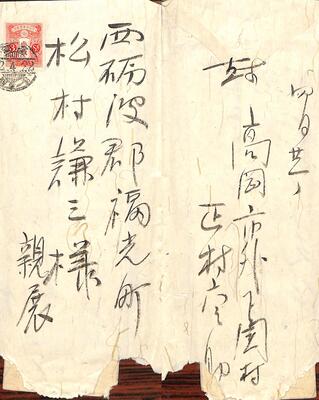 西砺波郡福光町
松村謙三様
親展
四月廿一
封
高岡市外下関村
正村宗助